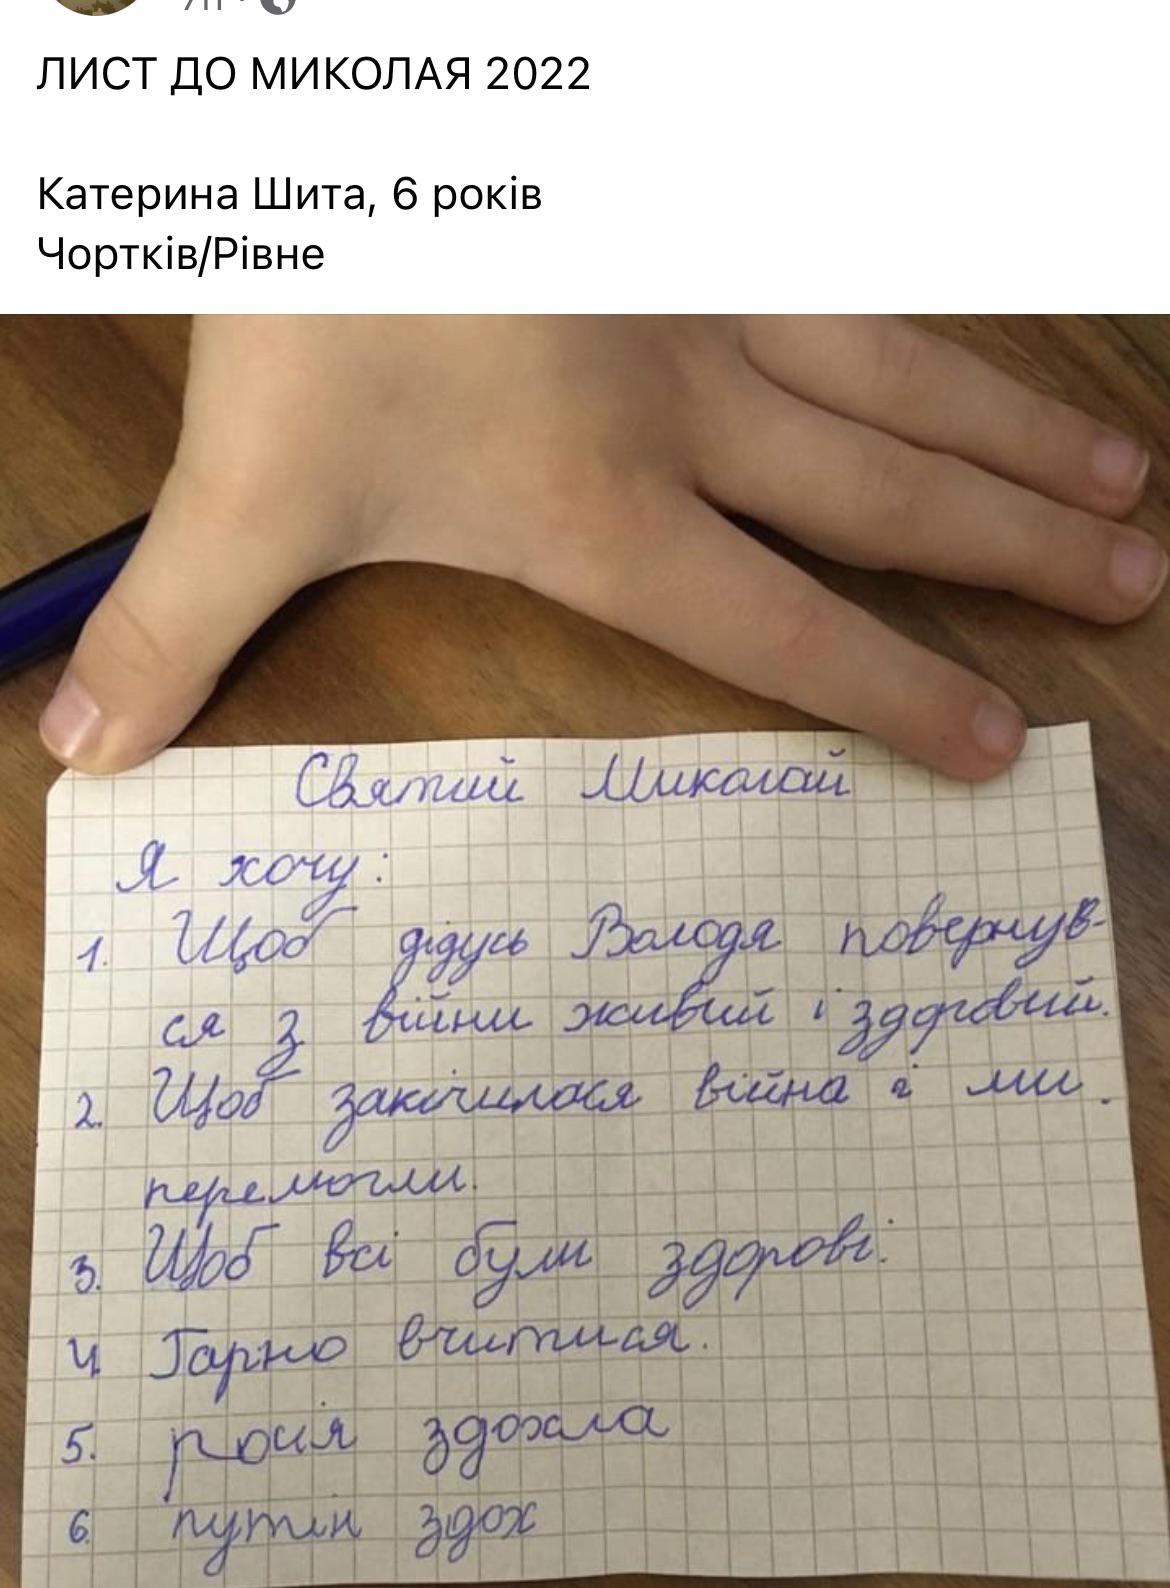 ЛИСТ ДО МИКОЛАЯ 2022
Катерина Шита, 6 років
Чортків/Рівне
Святий Миколай
Я хочу:
1. Щоб дідусь Володя повернув-
ся з війни живий і здоровий.
2. Щоб закічилася війна і ми
перемогли.
3. Щоб всі були здорові.
4. Гарно вчитися.
5. росія здохла
6. путін здох